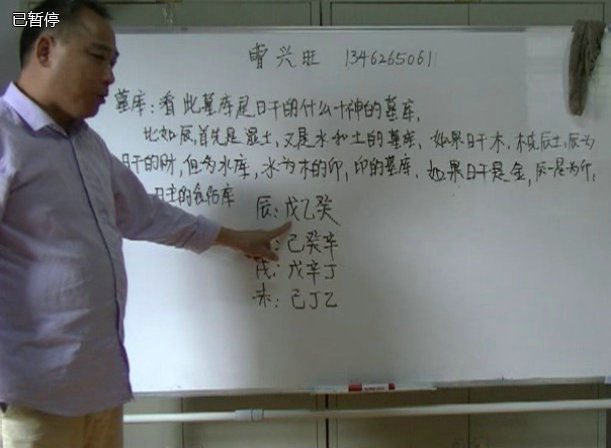 已暂停
曹兴旺 13462650611
墓库:看此墓库是日干的什么十神的墓库,
比如辰,首先是湿土,又是水和土的墓库,如果日干木,木克辰土,辰为
日干的财,但为水库,水为木的印,印的墓库,如果日干是金,辰是为印,
日主的食伤库
辰:戊乙癸
:己癸辛
戌:戊辛丁
未:己丁乙